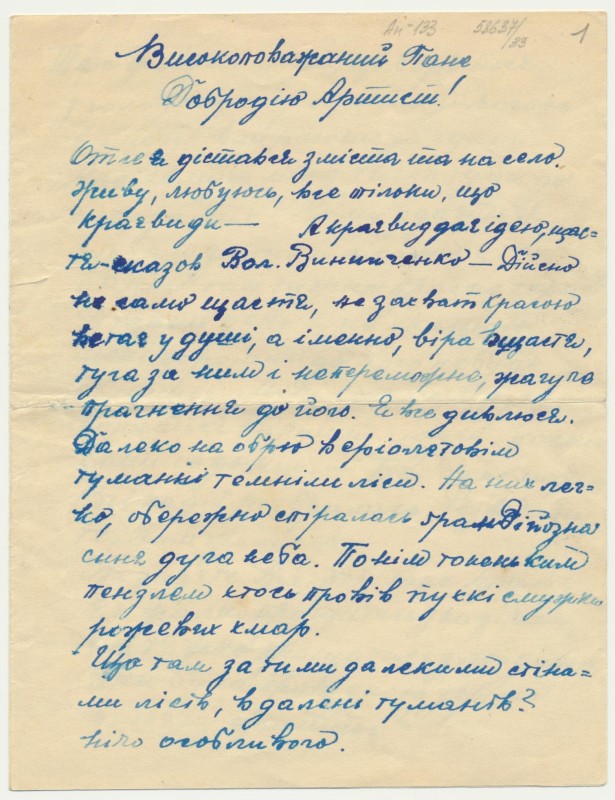 Ан-133 58637/33 1
Високоповажаний Пане
Добродію Артист!
От і я дістався з міста та на село.
Живу, любуюсь, все тілоки, що
краєвиди— А краєвид дає ідею, щас-
тя-сказов Вол. Винниченко — Дійсно
не само щастя, не захват красою
встає у душі, а іменно, віра в щастя,
туга за ним і непереможне, жагуче
прагнення до його. Я все дивлюся.
Далеко на обрію в фіолетовім
туманкі темніли ліси. На них лег-
ко, обережно спіралась грандіозна
синя дуга неба. По нім тоненьким
пензлем хтось провів пухкі смужки
рожевих хмар.
Що там за тими далекими стіна-
ми лісів, в далені туманів?
нічо особливого.